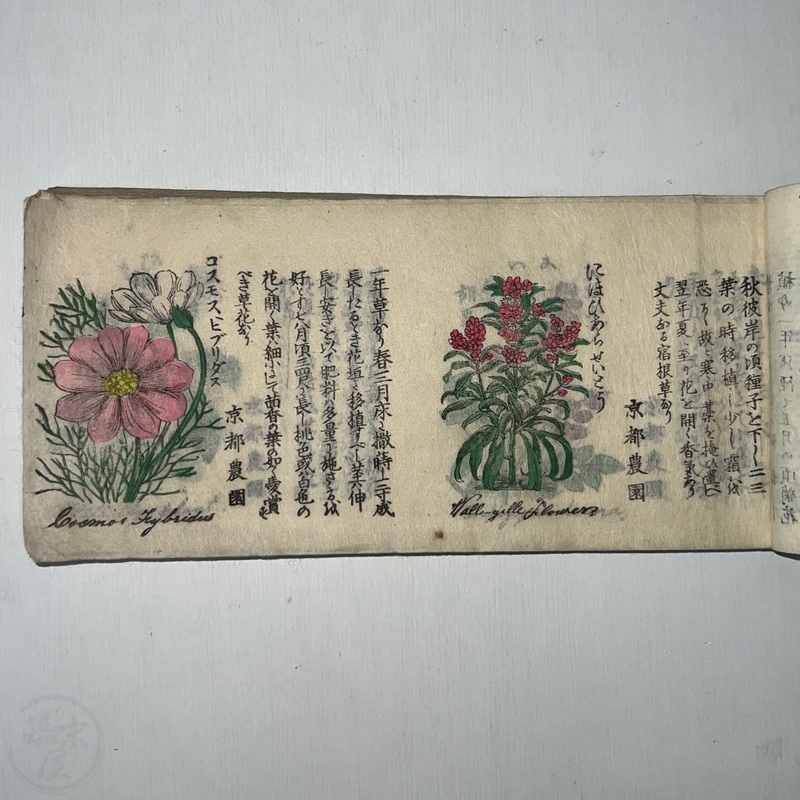 秋彼岸の頃種子を下し二三
葉の時移植し少し霜を
恐る故に寒中葉を掩ひ置べし
翌年夏に至り花を開く香氣あり
丈夫なる宿根草なり
京都農園
にほひあらせいとう
Wall-gille Flowers
一年草なり春三月床に撒蒔二寸成
長したるとき花垣に移植すべし莖伸
長し安きをもつて肥料は多量に施さるを
好しとす七八月頃三四尺に長し桃色或は白色の
花を開く葉細小にして茴香の葉の如く愛賞す
べき草花なり
京都農園
コスモス、ヒブリダス
Cosmos Hybridus